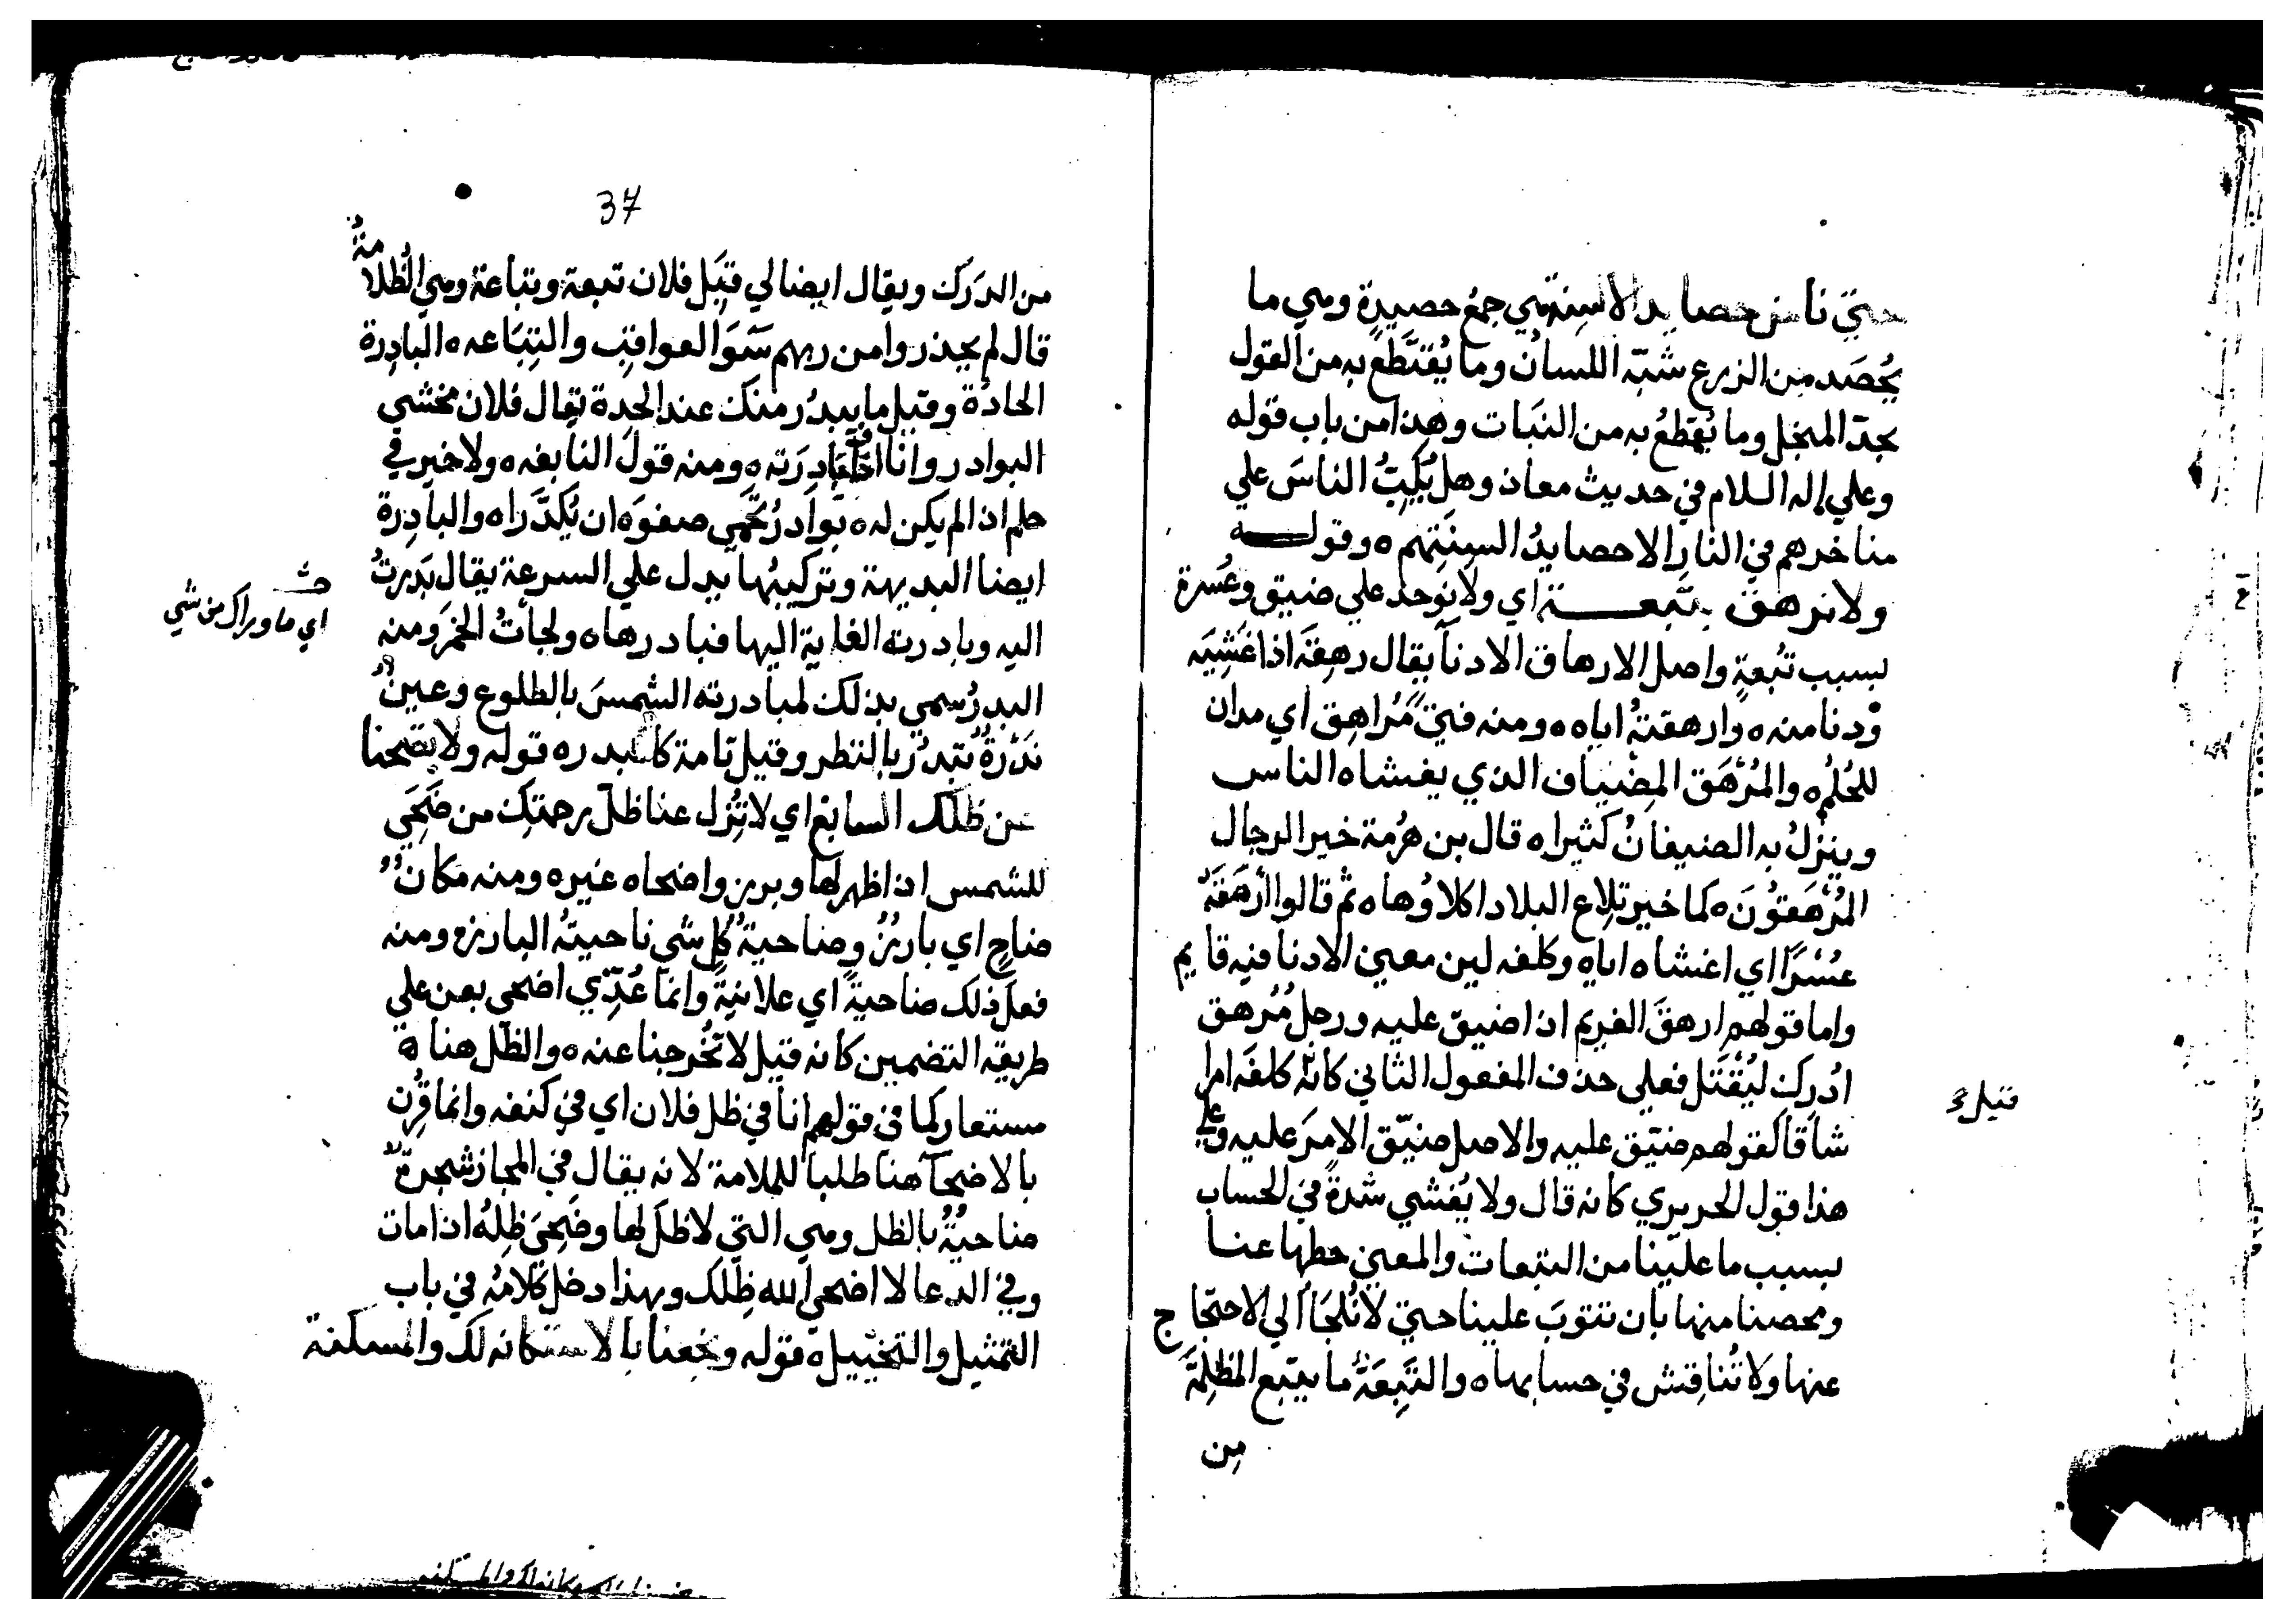 حتى نأمن حصايد الالسنة هي جمع حصيدة وهي ما
يُحصَد من الزرع شبّه اللسان وما يُقتَطَع به من القول
بحدّ المنجل وما يُقطَعُ به من النبات وهذا من باب قوله
وعلي اله السلام في حديث معاذ وهل يُكِبُّ الناسَ علي
مناخرهم في النار الا حصايدُ السِنَتِهم ه وقولــه
ولا نرهق بتبعــة اي ولا نوخذ علي ضيق وعُسرة
بسبب تَبِعةٍ واصل الارهاق الادنآ يقال رهِقَه اذا غشِيَه
ودنا منه ه وارهقتُه اياه ه ومنه فتيً مُراهِق اي مدان
للحُلُم ه والمُرَهَّق المِضياف الذي يغشاه الناس
وينزلُ به الضيفانُ كثيرا ه قال بن هَرْمة خير الرجال
المُرَهَّقُونَ ه كما خير تِلاع البلاد اكلاوُها ه ثم قالوا أرْهَقَهُ
عُسْرًا اي اغشاه اياه وكلفه لين معني الادنا فيه قايم
واما قولهم ارهقَ الغريم اذا ضيق عليه ورجل مُرْهق
اُدرِك ليُقْتَل فعلي حذف المفعول الثاني كانهُ كلفَه امرا
قتيل
شاقًا كقولهم ضيّق عليه والاصل ضيّق الامرَ عليه وعلي
هذا قول الحريري كانه قال ولا يُغشي شدةً في الحساب
بسبب ما علينا من التبعات والمعني حطها عنا
ومحصنا منها بأن تتوبَ علينا حتي لا نُلجَأ الي الاحتجاج
عنها ولا نُناقش في حسابها ه والتَّبِعَةُ ما يتبع المظلِمَة
مِن
37
من الدَرَك ويقال ايضا لي قِبَل فلان تبعة وتباعةُ وهي الظُلامةُ
قال لم يحذروا من ربهم سُوَ العواقِب والتِبَاعه ه البادِرة
الحادّة وقيل ما يبدُر منك عند الحِدة يقال فلان مخشي
البوادر وانا اخافُ بادِرَته ه ومنه قولَ النابغه ه ولا خير في
حلم اذا لم يكن له ه بوادرُ تَحمي صفوَه ان يُكدَّرا ه والبادِرة
ايضا البديهة وتركيبُها يدل علي السرعة يقال بَدرتُ
اليه وبادرته الغاية اليها فبادرها ه ولجأتُ الخمَر ومنه
اي ما وراك من شي
البدرُ سمي بذلك لمبادرته الشمسَ بالطلوع وعينٌ
بَدْرَةٌ تبدُر بالنظر وقيل تامة كالبدر ه قوله ولا تضحنا
عن ظلّك السابغ اي لا تُزِل عنا ظلّ رحمتِك من ضَحِيَ
للشمس اذا ظهر لها وبرز واضحاه غيره ومنه مكانٌ
ضاحٍ اي بارزٌ وضاحيةُ كل شي ناحيتهُ البارزة ومنه
فعلَ ذلك ضاحيةً اي علانيةً وانما عُدِّي اضحى بعن علي
طريقه التضمين كانه قيل لا تُخْرجنا عنه ه والظلّ هنا ه
مستعار كما في قولهم أنا في ظل فلان اي في كنفه وانما قُرِن
بالاضحآ هنا طلبا للملامة لانه يقال في المجاز شجرةٌ
ضاحيةُ بالظل وهي التي لا ظلّ لها وضَحِيَ ظِلهُ اذا مات
وفي الدعا لا اضحى الله ظِلّك وبهذا دخل كلامُه في باب
التمثيل والتخييل ه قوله وبخعنا بالاستكانه لك والمسكنة